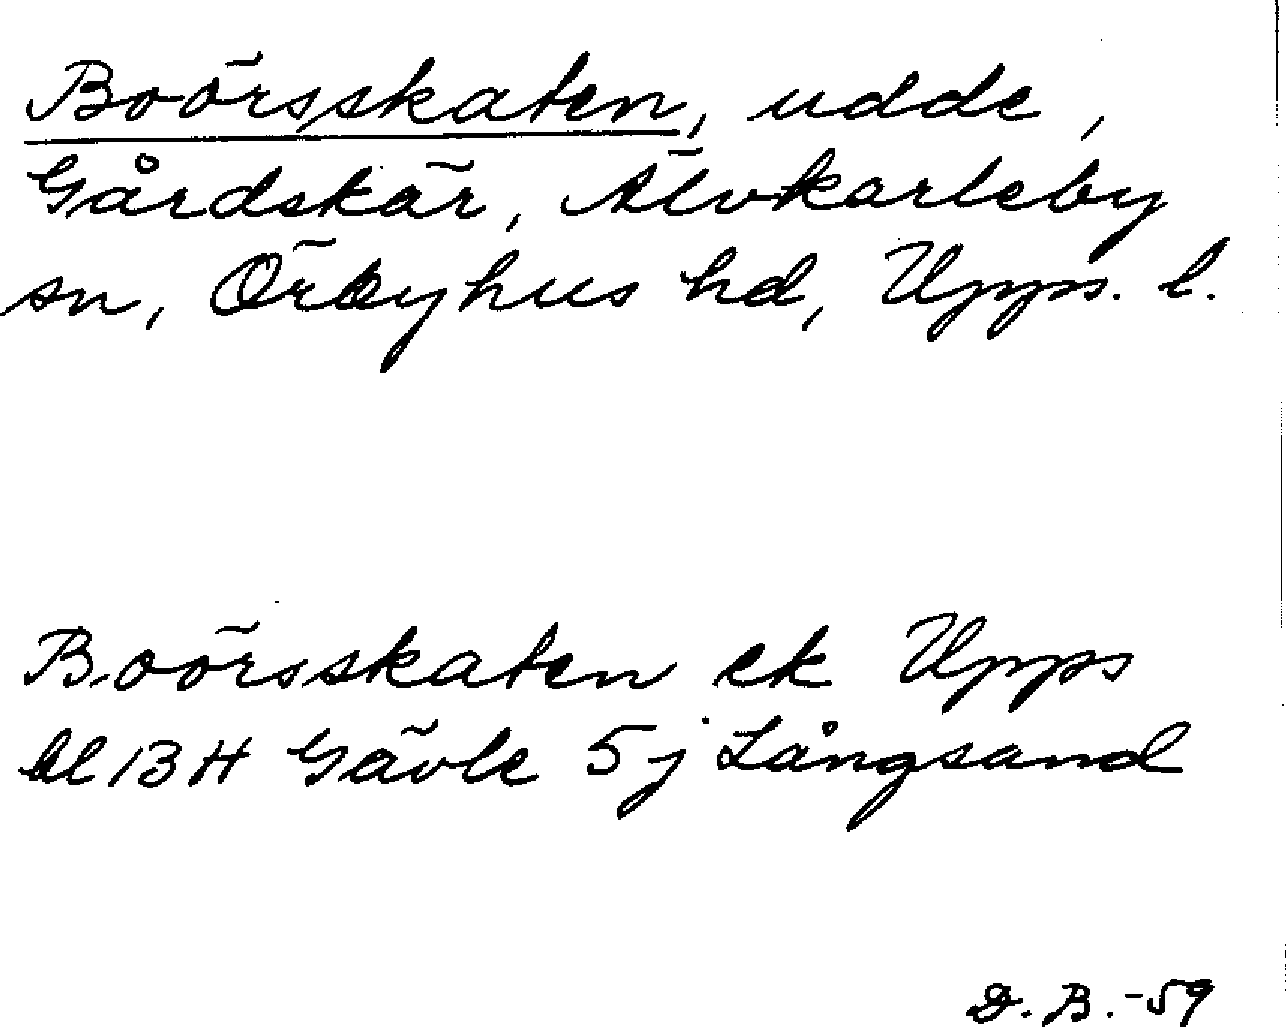 Boörsskaten, udde,
Gårdskär, Älvkarleby
sn, Örbyhus hd, Upps. l.
Boörsskaten ek Upps
bl 13 H Gävle 5j Långsand
D. B. -59